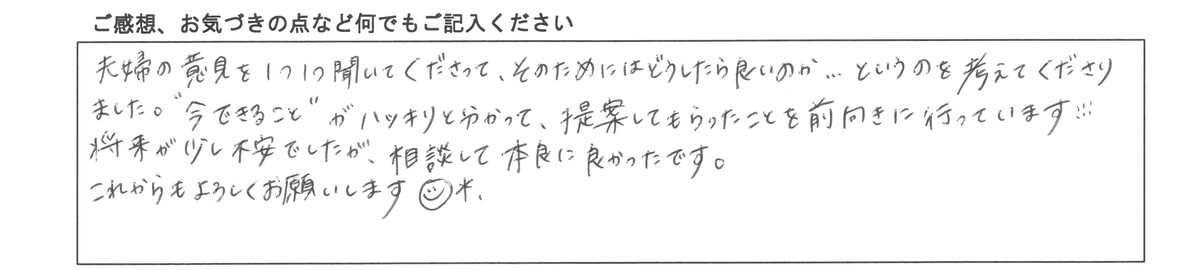 ご感想、お気づきの点など何でもご記入ください
夫婦の意見を1つ1つ聞いてくださって、そのためにはどうしたら良いのか…というのを考えてくださり
ました。"今できること"がハッキリと分かって、提案してもらったことを前向きに行っています!!!
将来が少し不安でしたが、相談して本良に良かったです。
これからもよろしくお願いします☺*.